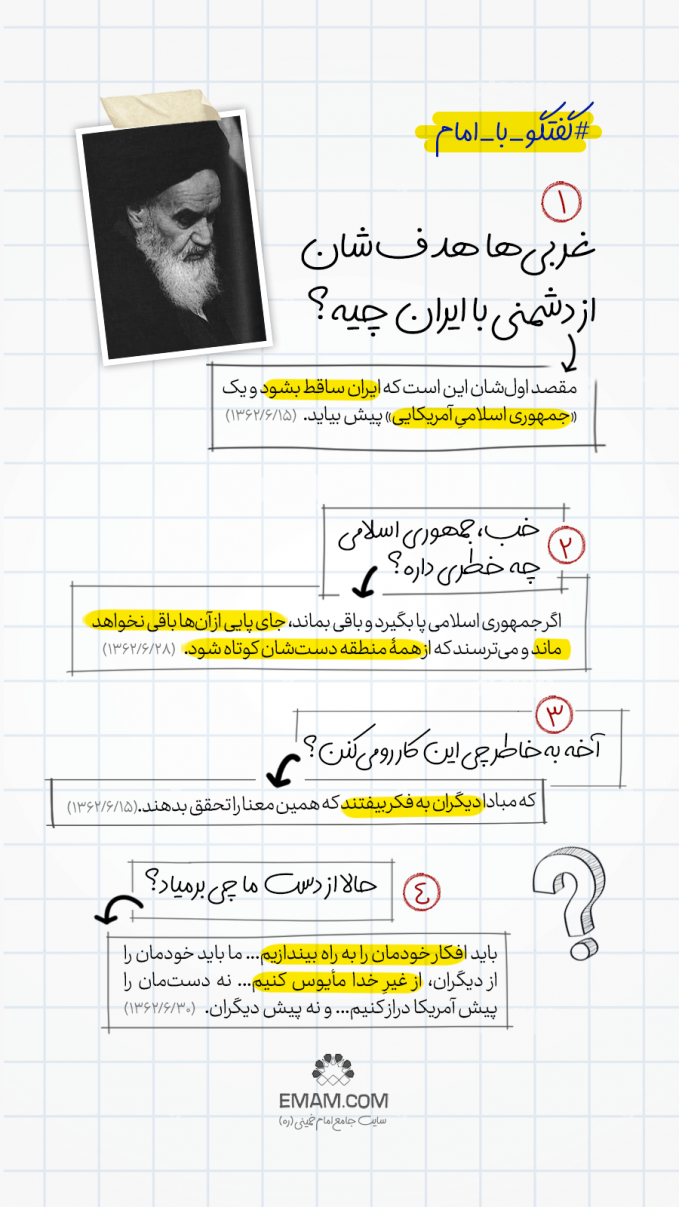 #گفتگو_با_امام
۱
غربی‌ها هدف‌شان
از دشمنی با ایران چیه؟
مقصد اول‌شان این است که ایران ساقط بشود و یک
«جمهوری اسلامیِ آمریکایی» پیش بیاید. (۱۳۶۲/۶/۱۵)
۲
خب، جمهوری اسلامی
چه خطری داره؟
اگر جمهوری اسلامی پا بگیرد و باقی بماند، جای پایی از آن‌ها باقی نخواهد
ماند و می‌ترسند که از همهٔ منطقه دست‌شان کوتاه شود. (۱۳۶۲/۶/۲۸)
۳
آخه به خاطر چی این کار رو می‌کنن؟
که مبادا دیگران به فکر بیفتند که همین معنا را تحقق بدهند. (۱۳۶۲/۶/۱۵)
٤
حالا از دست ما چی برمیاد؟
باید افکار خودمان را به راه بیندازیم... ما باید خودمان را
از دیگران، از غیرِ خدا مأیوس کنیم... نه دست‌مان را
پیش آمریکا دراز کنیم... و نه پیش دیگران. (۱۳۶۲/۶/۳۰)
EMAM.COM
سایت جامع امام خمینی (ره)